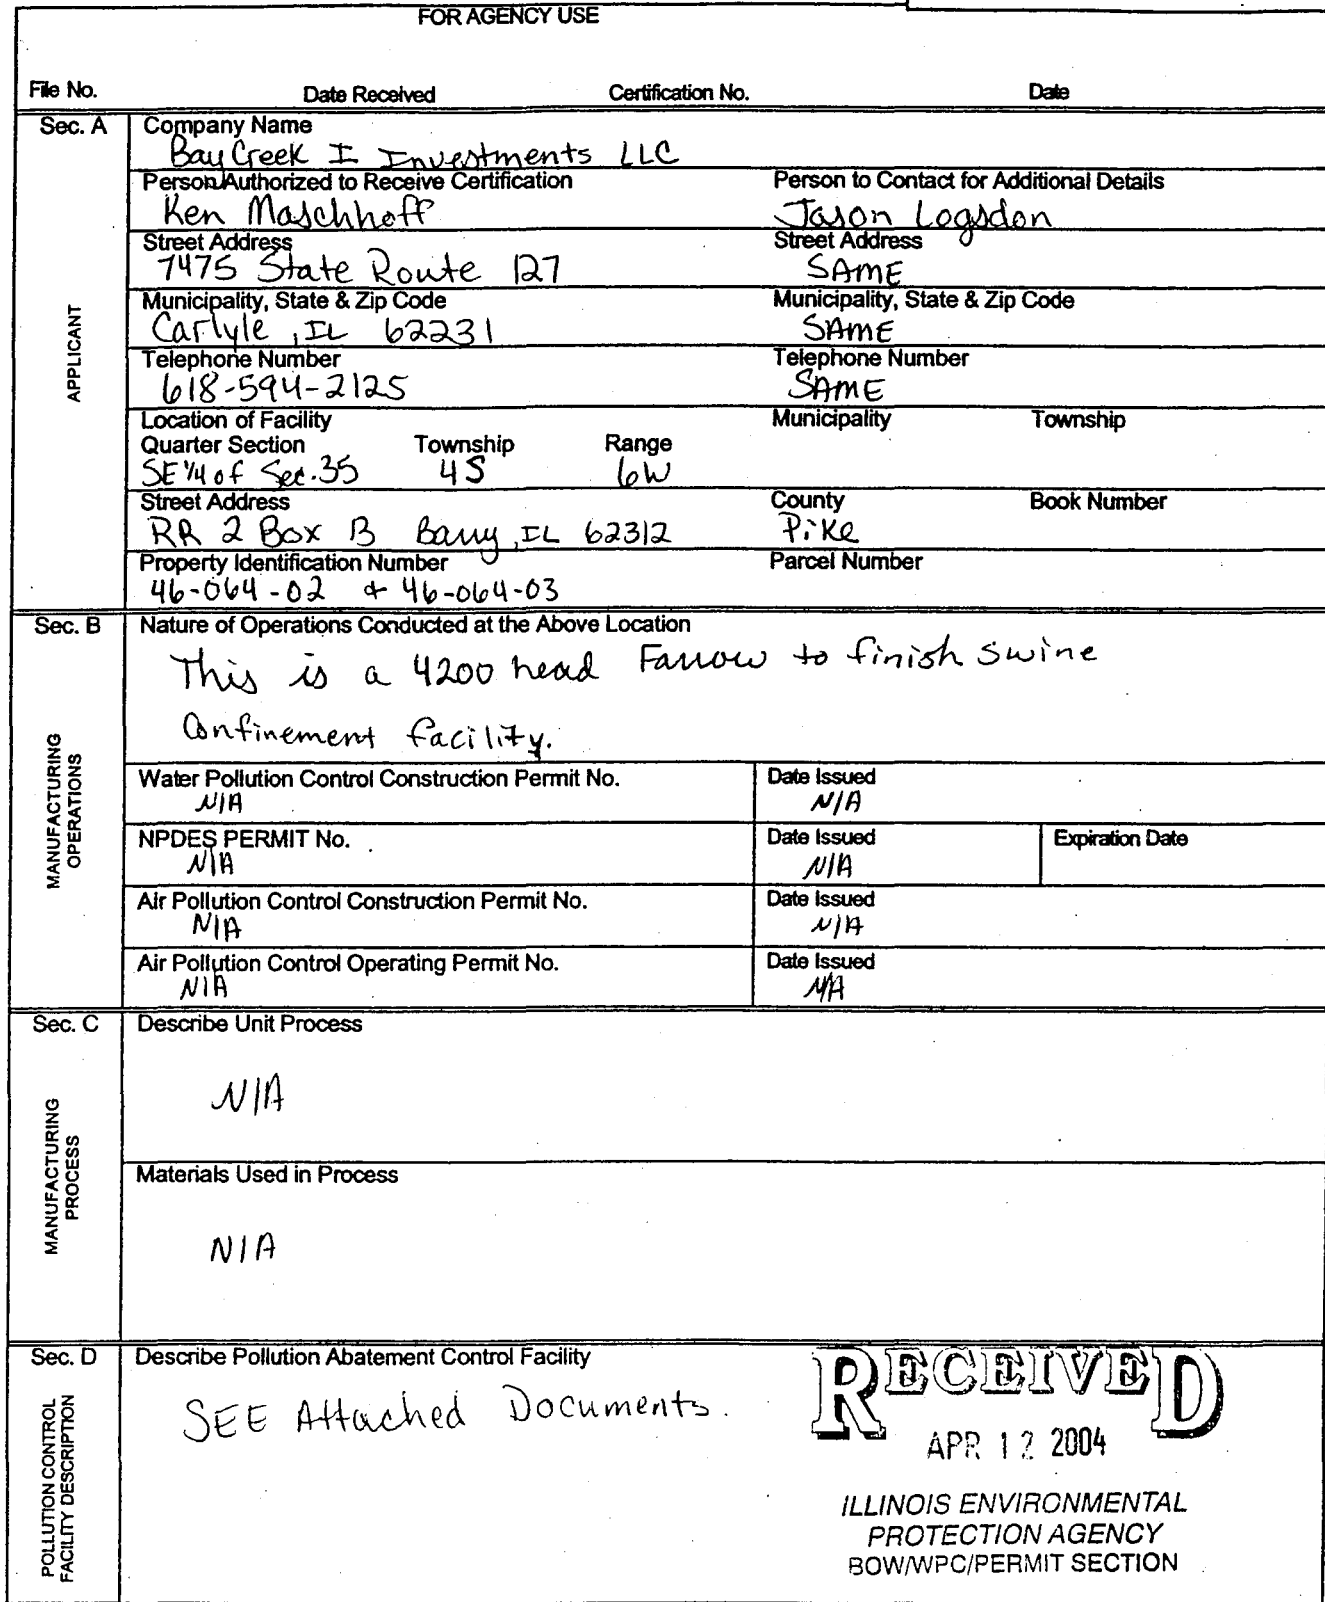 FOR AGENCY USE
File No. Date Received Certification No. Date
Sec. A
APPLICANT
Company Name
Bay Creek I Investments LLC
Person Authorized to Receive Certification Person to Contact for Additional Details
Ken Maschhoff Jason Logsdon
Street Address Street Address
7475 State Route 127 SAME
Municipality, State & Zip Code Municipality, State & Zip Code
Carlyle, IL 62231 SAME
Telephone Number Telephone Number
618-594-2125 SAME
Location of Facility Municipality Township
Quarter Section Township Range
SE 1/4 of Sec. 35 4S 6W
Street Address County Book Number
RR 2 Box B Barry, IL 62312 Pike
Property Identification Number Parcel Number
46-064-02 & 46-064-03
Sec. B
MANUFACTURING
OPERATIONS
Nature of Operations Conducted at the Above Location
This is a 4200 head Farrow to finish swine
Confinement facility.
Water Pollution Control Construction Permit No. Date Issued
N/A N/A
NPDES PERMIT No. Date Issued Expiration Date
N/A N/A
Air Pollution Control Construction Permit No. Date Issued
N/A N/A
Air Pollution Control Operating Permit No. Date Issued
N/A N/A
Sec. C
MANUFACTURING
PROCESS
Describe Unit Process
N/A
Materials Used in Process
N/A
Sec. D
POLLUTION CONTROL
FACILITY DESCRIPTION
Describe Pollution Abatement Control Facility
SEE Attached Documents.
RECEIVED
APR 12 2004
ILLINOIS ENVIRONMENTAL
PROTECTION AGENCY
BOW/WPC/PERMIT SECTION